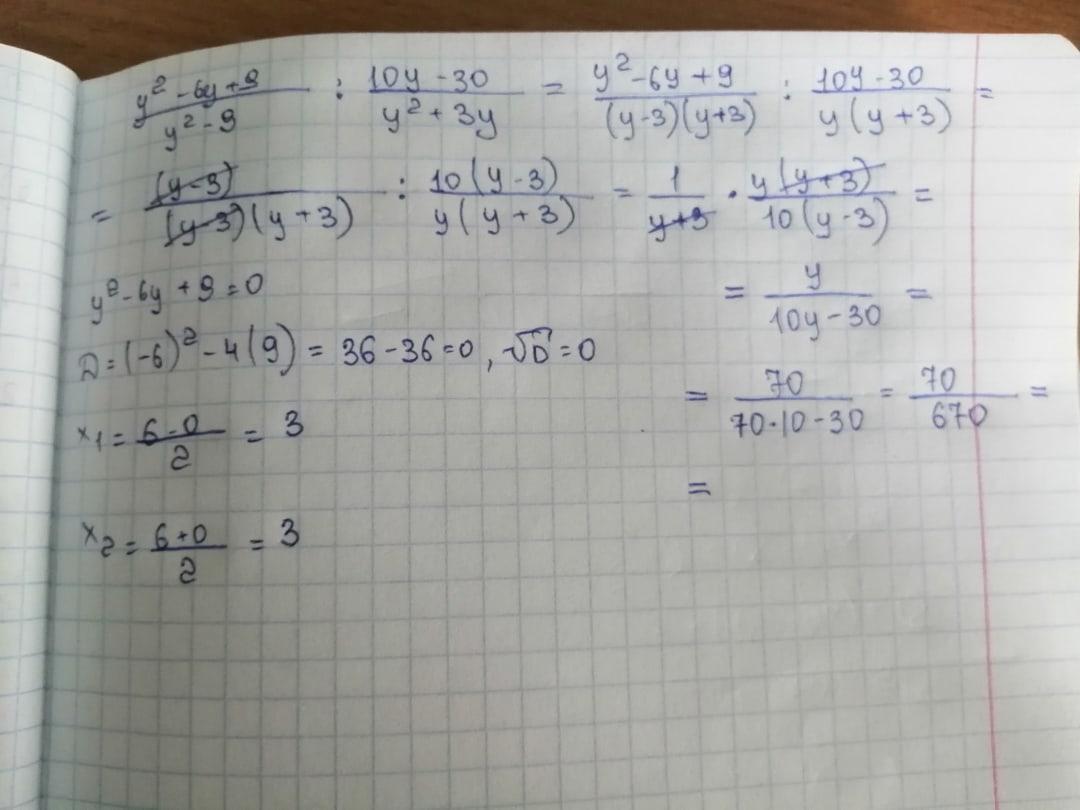 (y² - 6y + 9)/(y² - 9) : (10y - 30)/(y² + 3y) = (y² - 6y + 9)/((y-3)(y+3)) : (10y - 30)/(y(y+3)) =
= (y-3)/((y-3)(y+3)) : 10(y-3)/(y(y+3)) = 1/(y+3) · y(y+3)/(10(y-3)) =
y² - 6y + 9 = 0
= y/(10y - 30) =
D = (-6)² - 4(9) = 36 - 36 = 0, √D = 0
= 70/(70·10 - 30) = 70/670 =
x₁ = (6 - 0)/2 = 3
=
x₂ = (6 + 0)/2 = 3